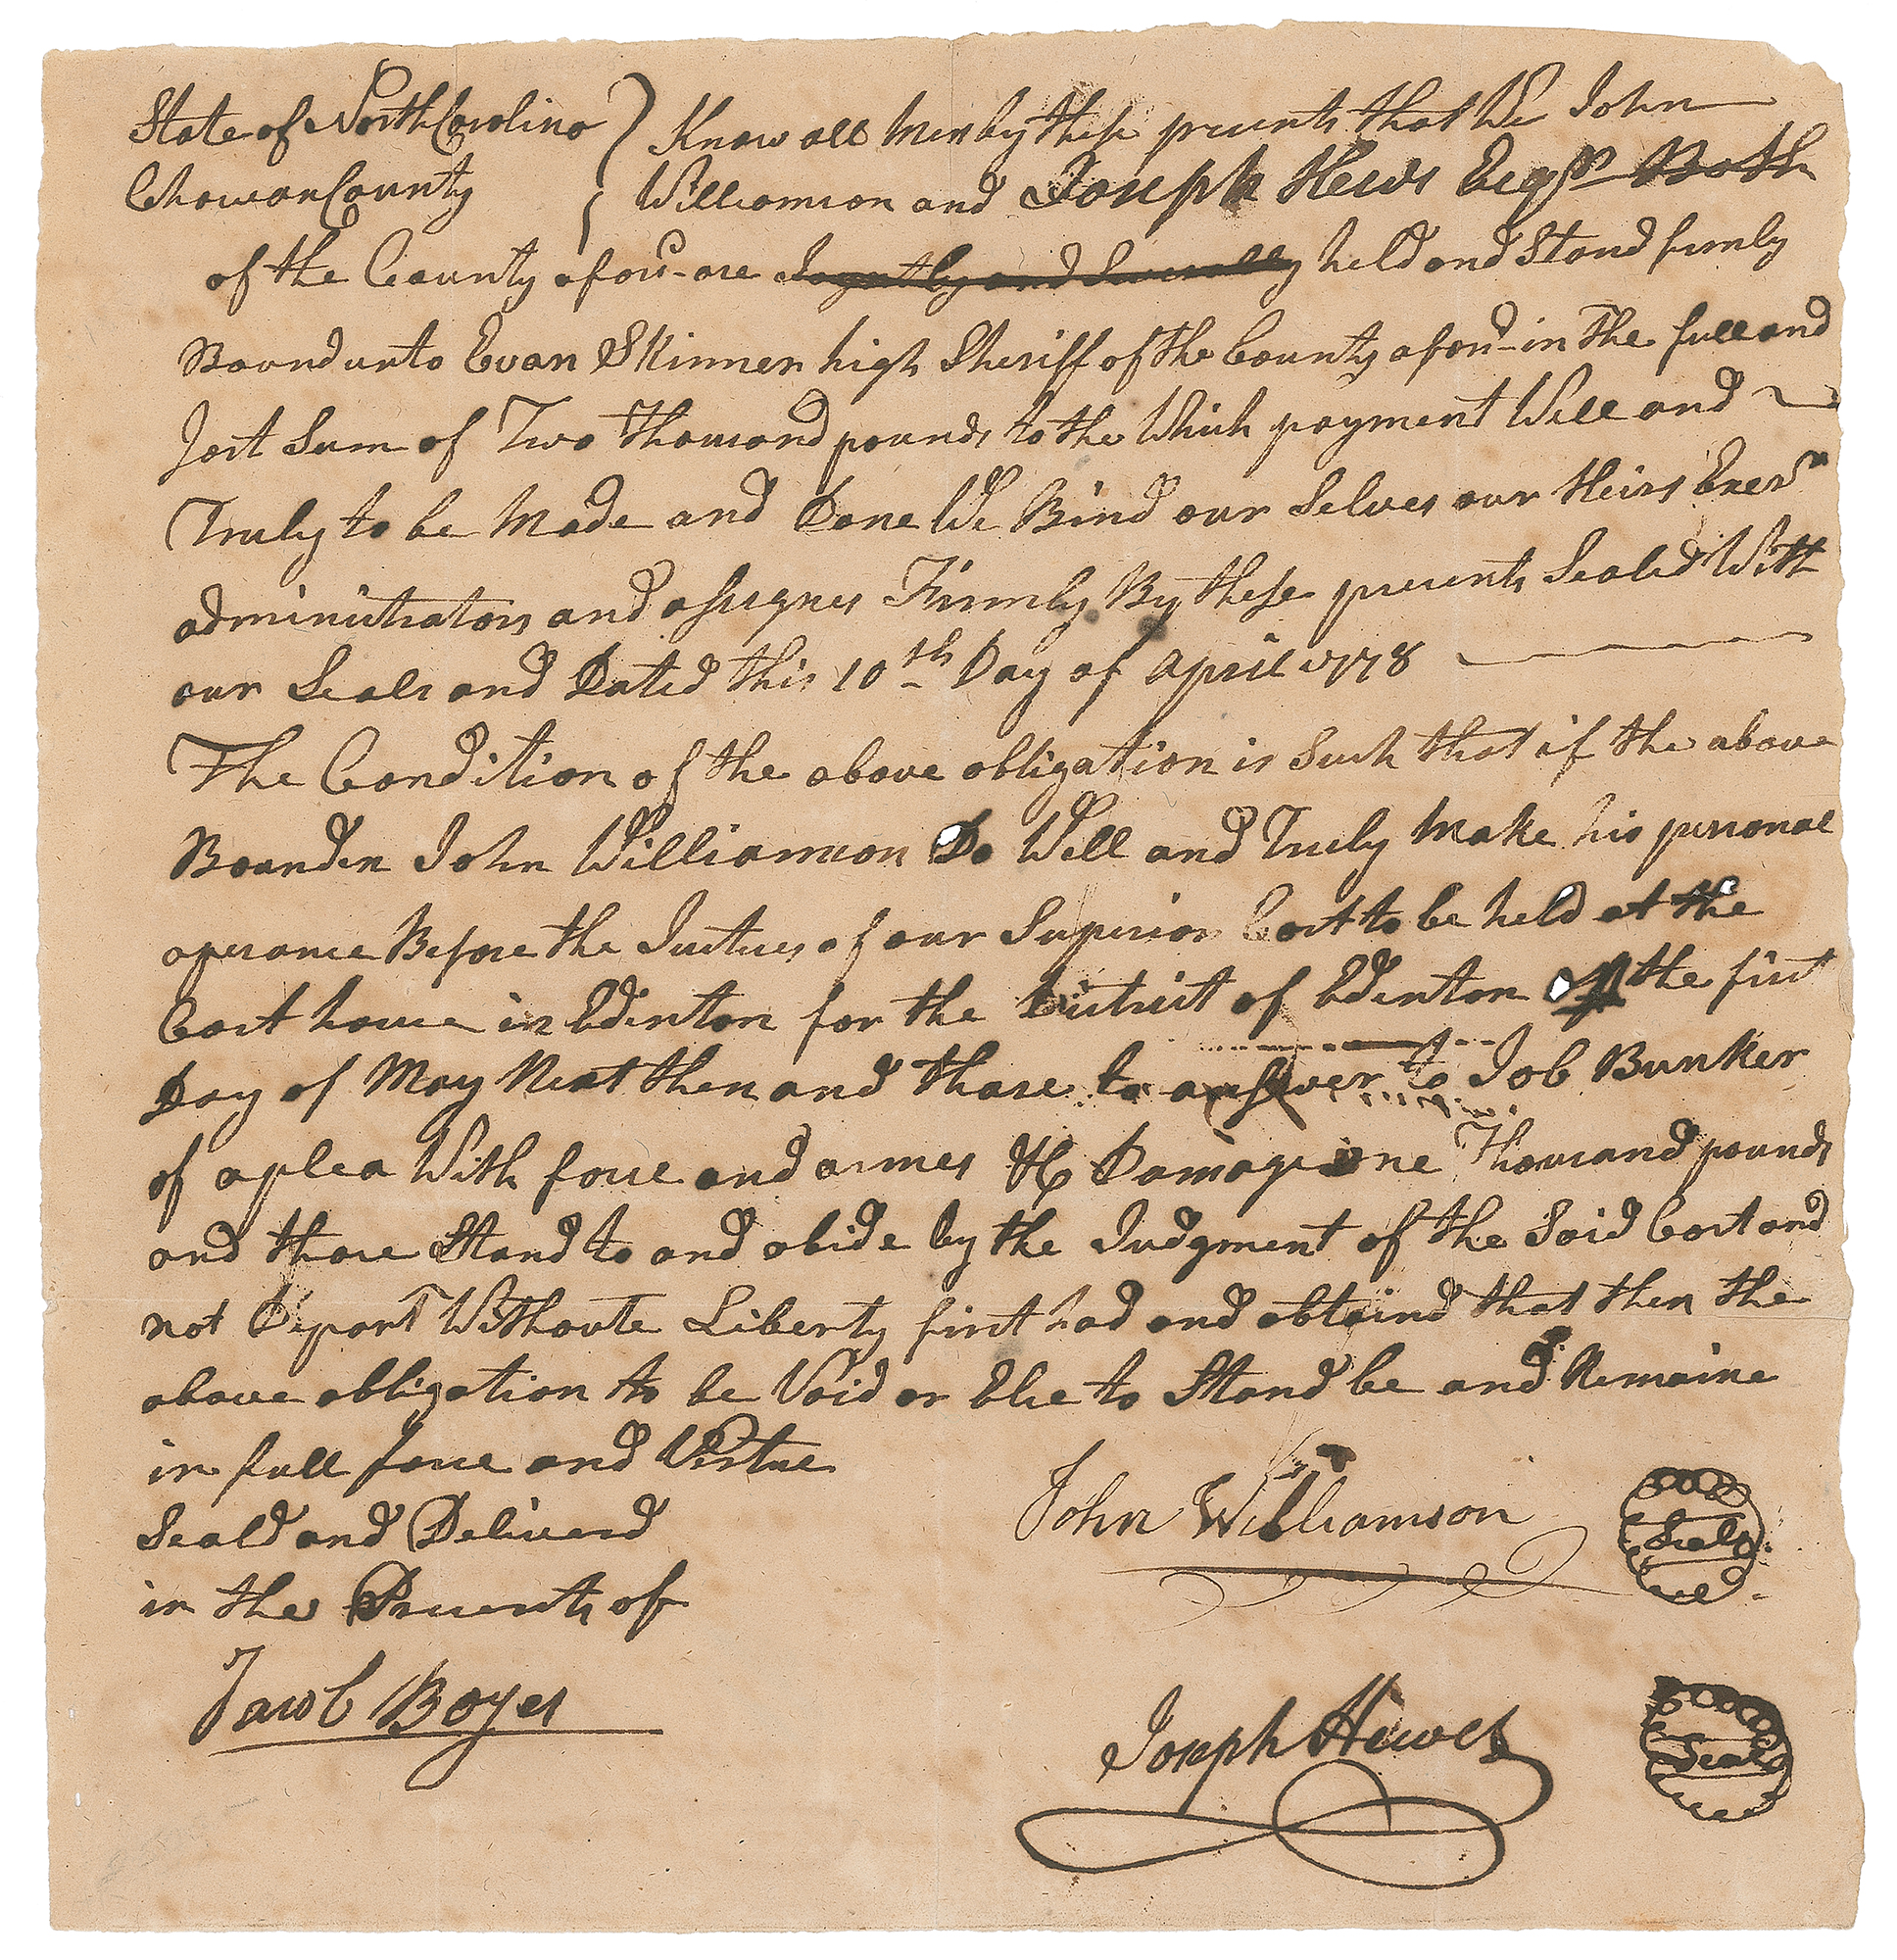 State of North Carolina } Know all Men by these presents that We John
Chowan County } Williamson and Joseph Hews Esqr. Both
of the County aforsd. are Joyntly and Severally held and Stand firmly
Bound unto Evan Skinner high Sheriff of the County aforsd. in The full and
Jost Sum of Two Thousand pounds to the Which payment Will and
Truly to be Made and Done We Bind our Selves our Heirs Exers
administrators and assignes Firmly By these presents Sealed With
our Seals and Dated this 10th Day of April 1778
The Condition of the above obligation is Such that if the above
Bounden John Williamson Do Well and Truly Make his personal
aperance Before the Justices of our Superior Cort to be held at the
Cort house in Edinton for the District of Edinton the first
Day of May Next then and thare to answer to Job Bunker
of a plea With force and armes &c Damage one Thousand pounds
and thare Stand to and abide by the Judgment of the Said Cort and
not Depart Withoute Liberty first had and obtaind that then the
above obligation to be Void or Else to Stand be and Remaine
in full force and Virtue
Seald and Deliverd
in the Presents of
John Williamson Seal
Jacob Boyes
Joseph Hewes Seal